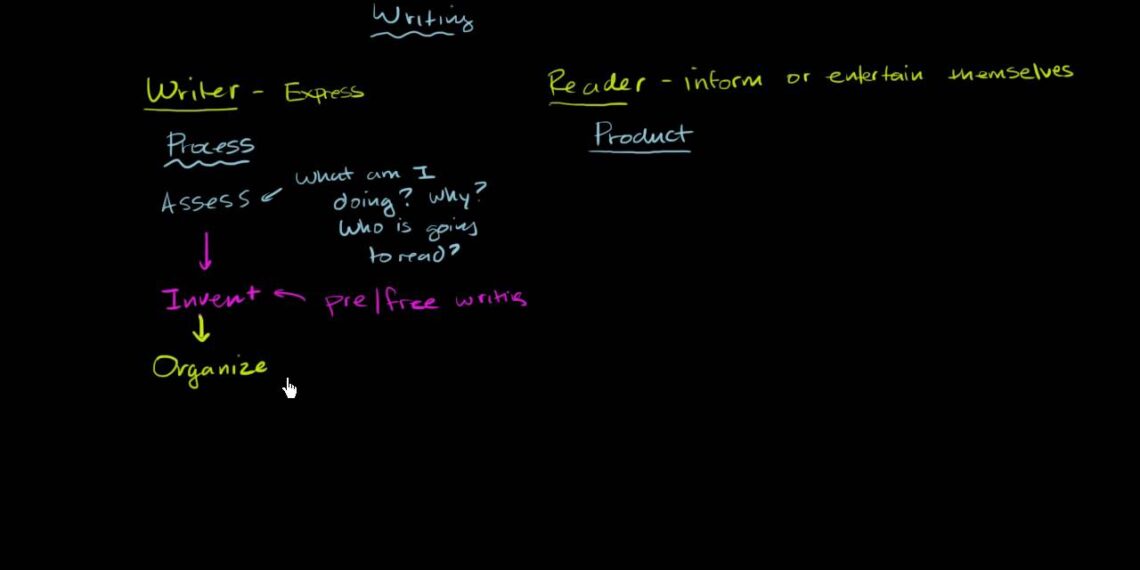 Writing
Writer - Express
Reader - inform or entertain themselves
Process
Product
Assess
What am I
doing? why?
Who is going
to read?
Invent
pre/free writing
Organize